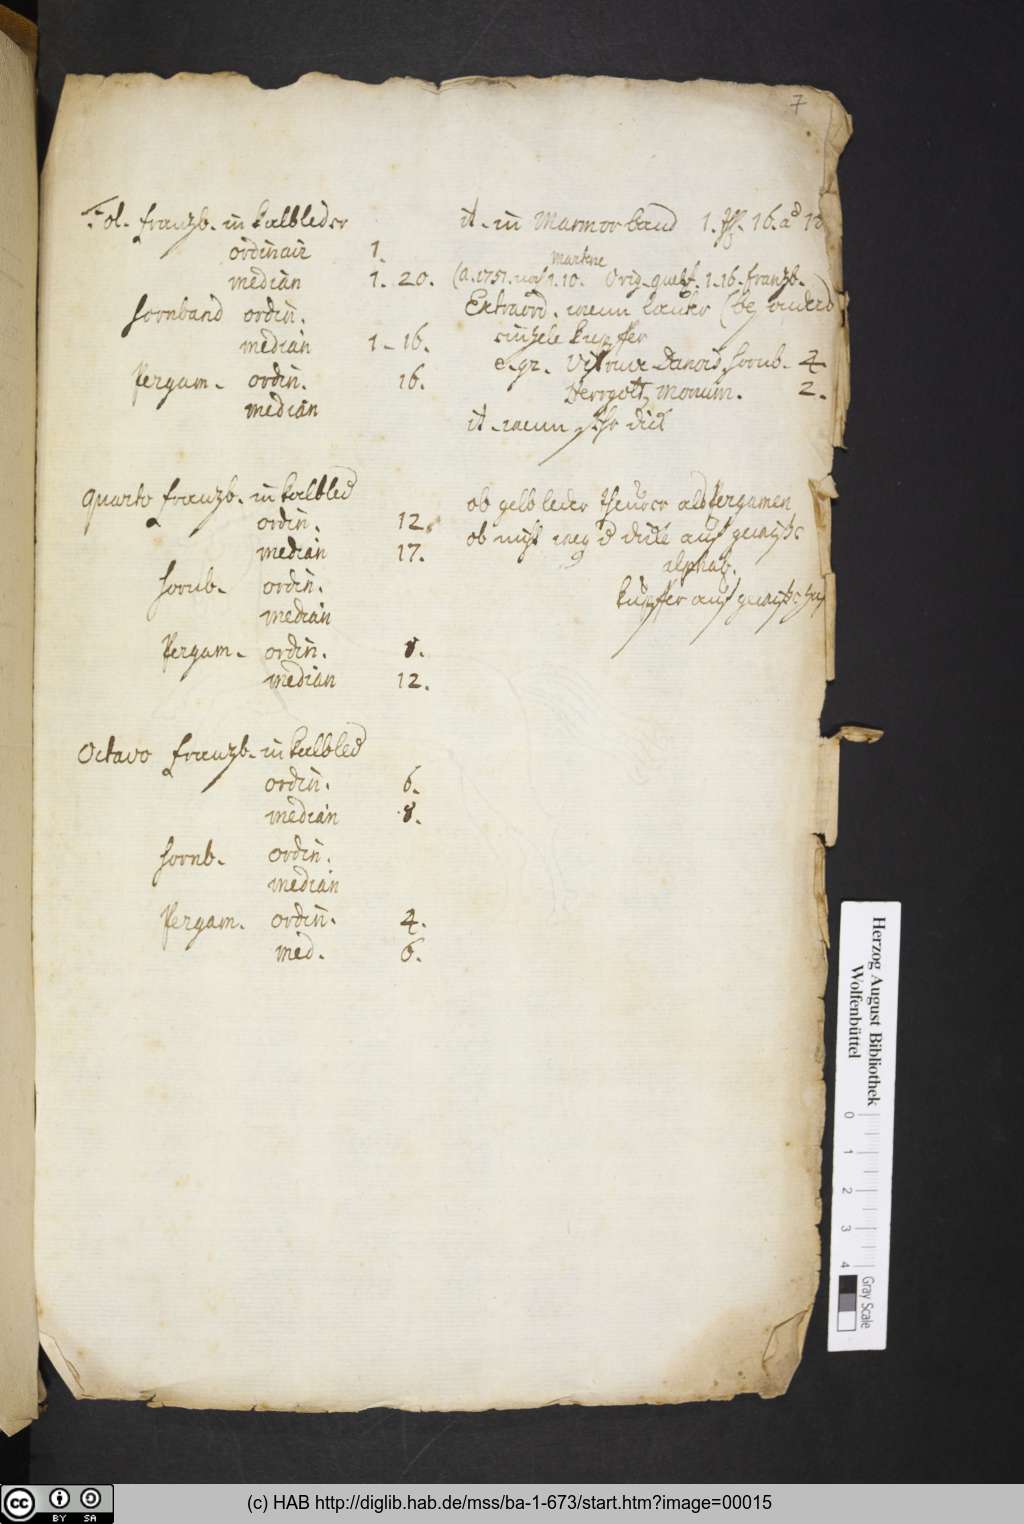 7
Fol. franzb. in kalbleder
ordinair 1.
median 1. 20.
hornband ordin.
median 1 - 16.
Pergam. ordin. 16.
median
Quarto franzb. in kalbled
ordin. 12.
median 17.
hornb. ordin.
median
Pergam. ordin. 8.
median 12.
Octavo franzb. in kalbled
ordin. 6.
median 8.
hornb. ordin.
median
Pergam. ordin. 4.
med. 6.
it. in Marmorband 1. 16. a 18
Martene
(a. 1751. 1.10. Orig. guelf. 1-16. franzb.
Extraord. wenn lauter
einzele kupfer
e. gr. Vitruve Danois hornb. 4
Herrgott Monum. 2.
it. wenn sehr dick
ob gelb leder theurer als Pergamen
ob nicht weg d dicke auf gewisse
alphab.
kupfer auf gewisse
Herzog August Bibliothek
Wolfenbüttel
0 1 2 3 4
Gray Scale
cc BY SA
(c) HAB http://diglib.hab.de/mss/ba-1-673/start.htm?image=00015